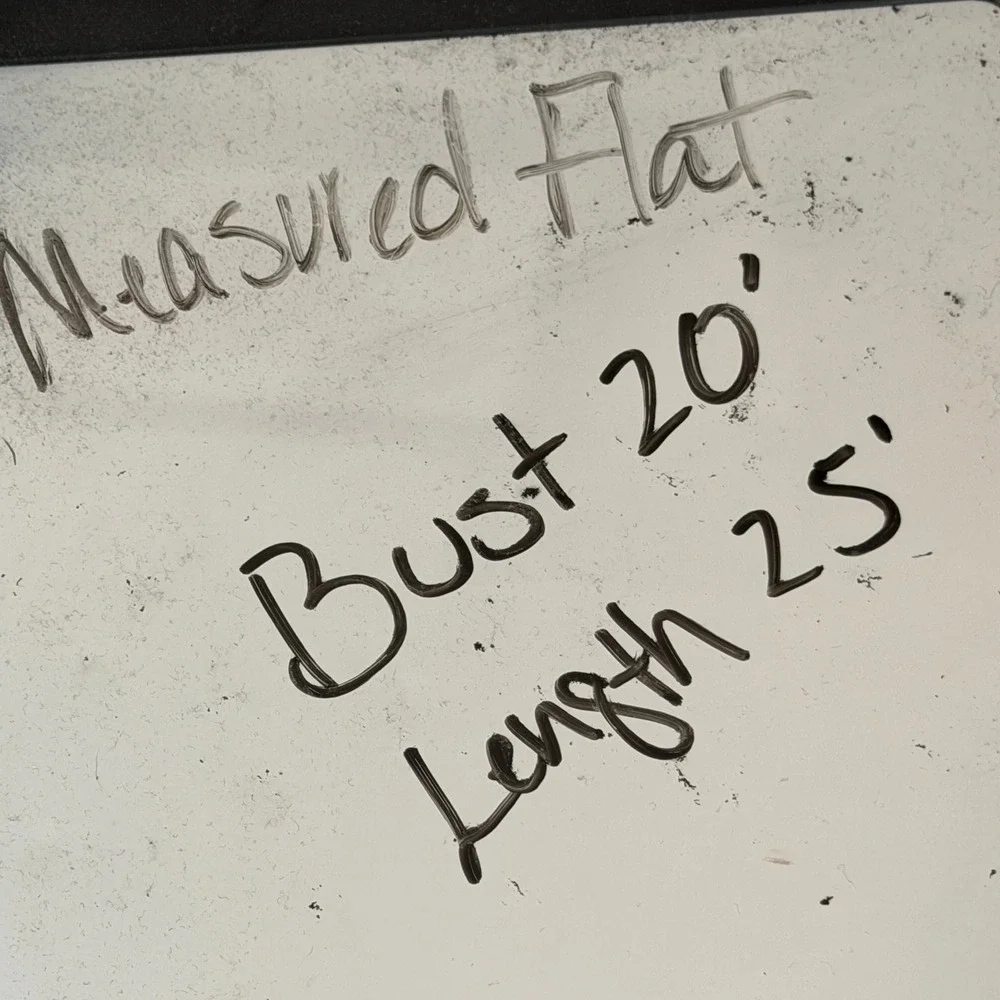 Measured Flat
Bust 20'
Length 25'